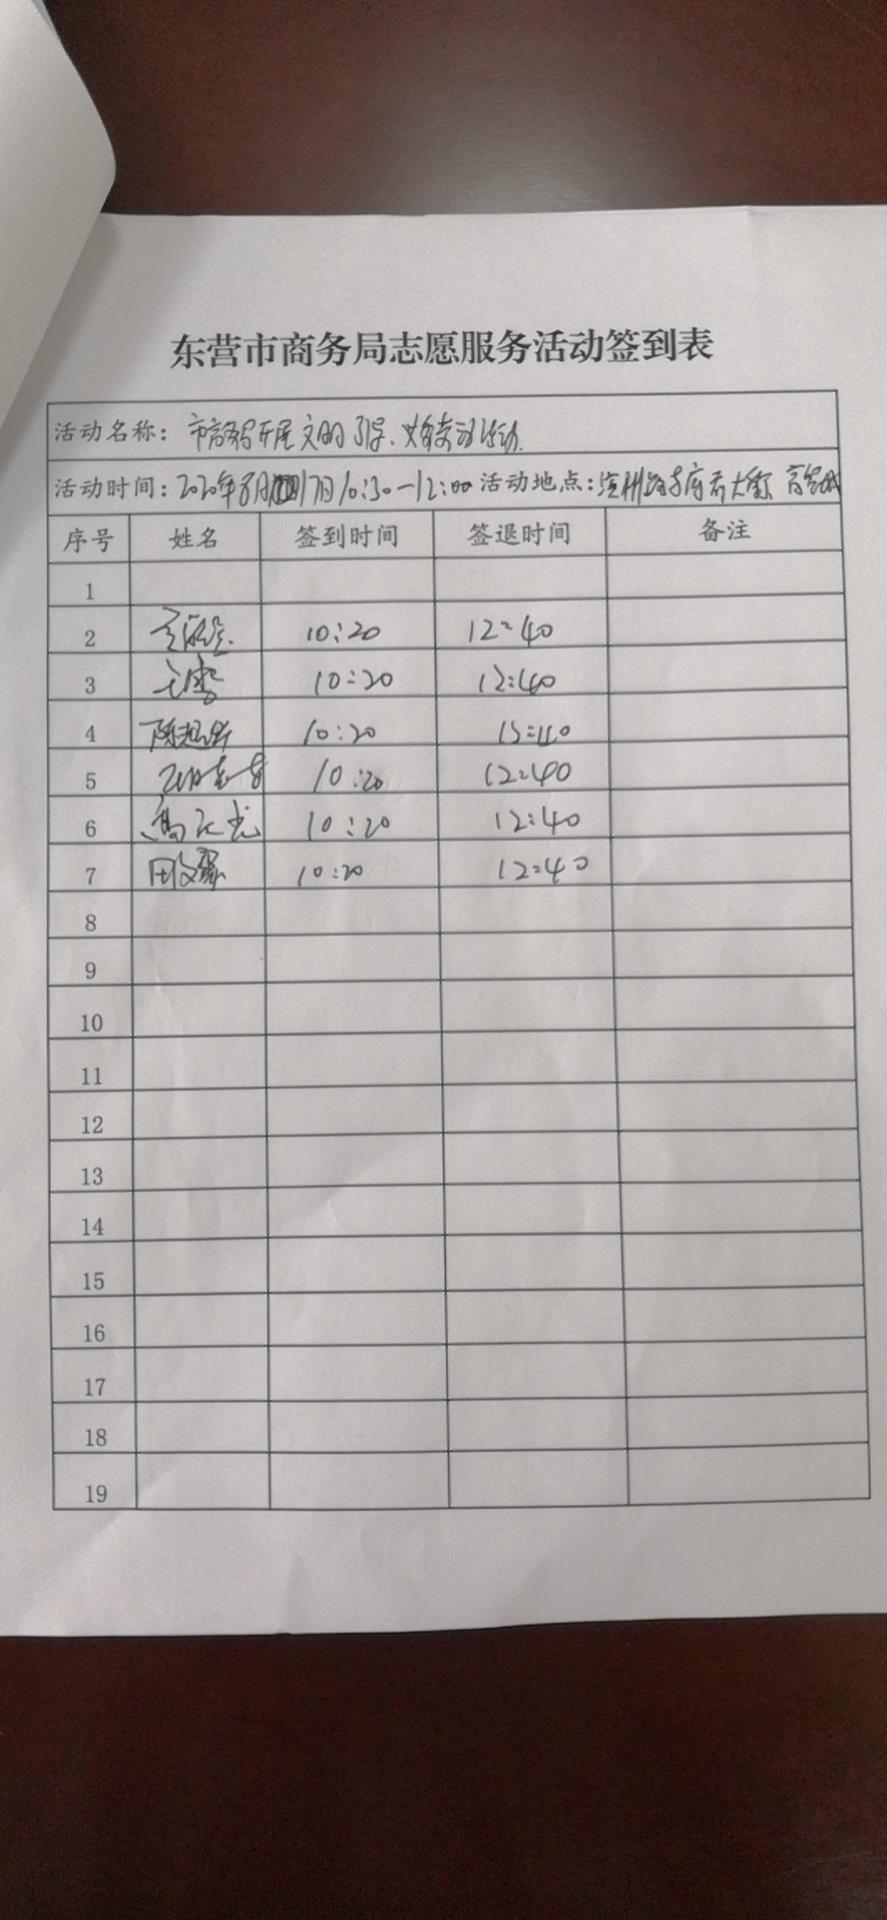 东营市商务局志愿服务活动签到表
活动名称：市商务局开展文明引导、义务劳动活动.
活动时间：2020年8月17日10:30-12:00 活动地点：滨州路与府前大街
序号 姓名 签到时间 签退时间 备注
1
2 10:20 12:40
3 王雪 10:20 12:40
4 10:20
5 10:20 12:40
6 10:20 12:40
7 10:20 12:40
8
9
10
11
12
13
14
15
16
17
18
19